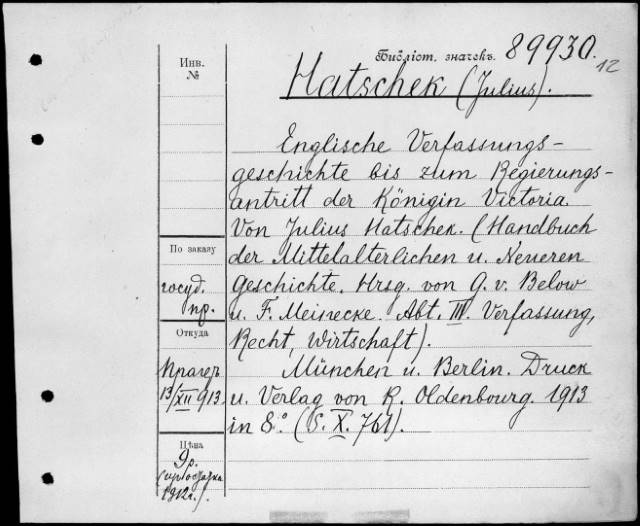 Инв.
№
Библіот. значекъ 89930.
12
Hatschek (Julius).
Englische Verfassungs-
geschichte bis zum Regierungs-
antritt der Königin Victoria.
Von Julius Hatschek. (Handbuch
der Mittelalterlichen u. Neueren
Geschichte. Hrsg. von G. v. Below
u. F. Meinecke. Abt. III. Verfassung,
Recht, Wirtschaft).
München u. Berlin. Druck
u. Verlag von R. Oldenbourg. 1913
in 8.° (S. X. 761).
По заказу
госуд.
пр.
Откуда
Прагеръ
13/XII 913.
Цѣна
9 р.
1912 г.).